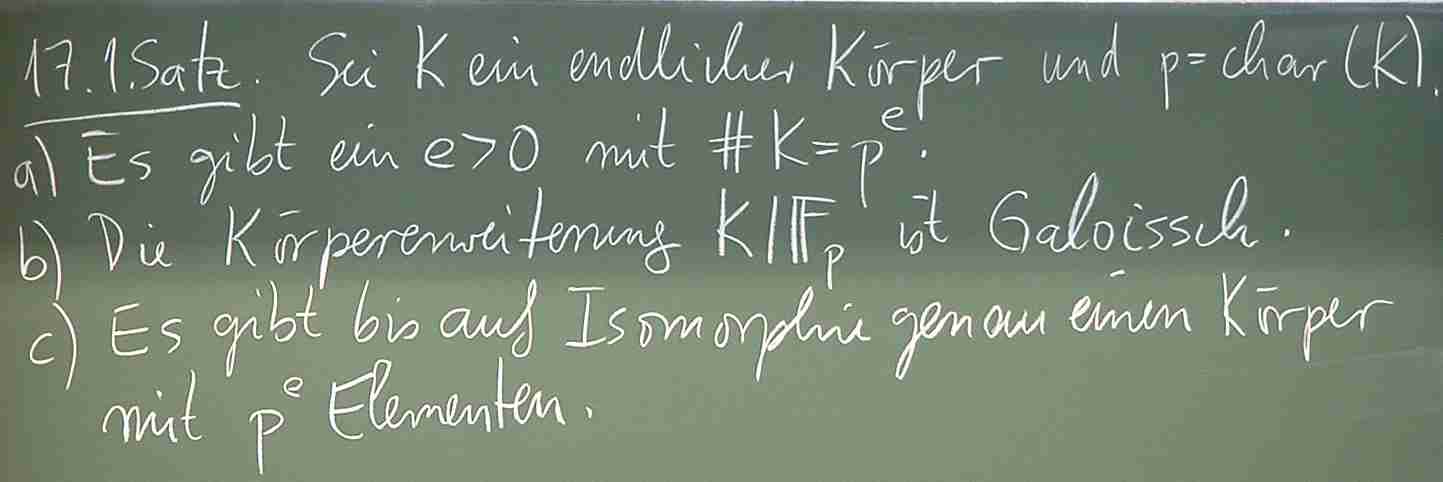 17.1.Satz. Sei K ein endlicher Körper und p=char(K).
a) Es gibt ein e>0 mit #K=p^e.
b) Die Körpererweiterung K|𝔽_p ist Galoissch.
c) Es gibt bis auf Isomorphie genau einen Körper
mit p^e Elementen.